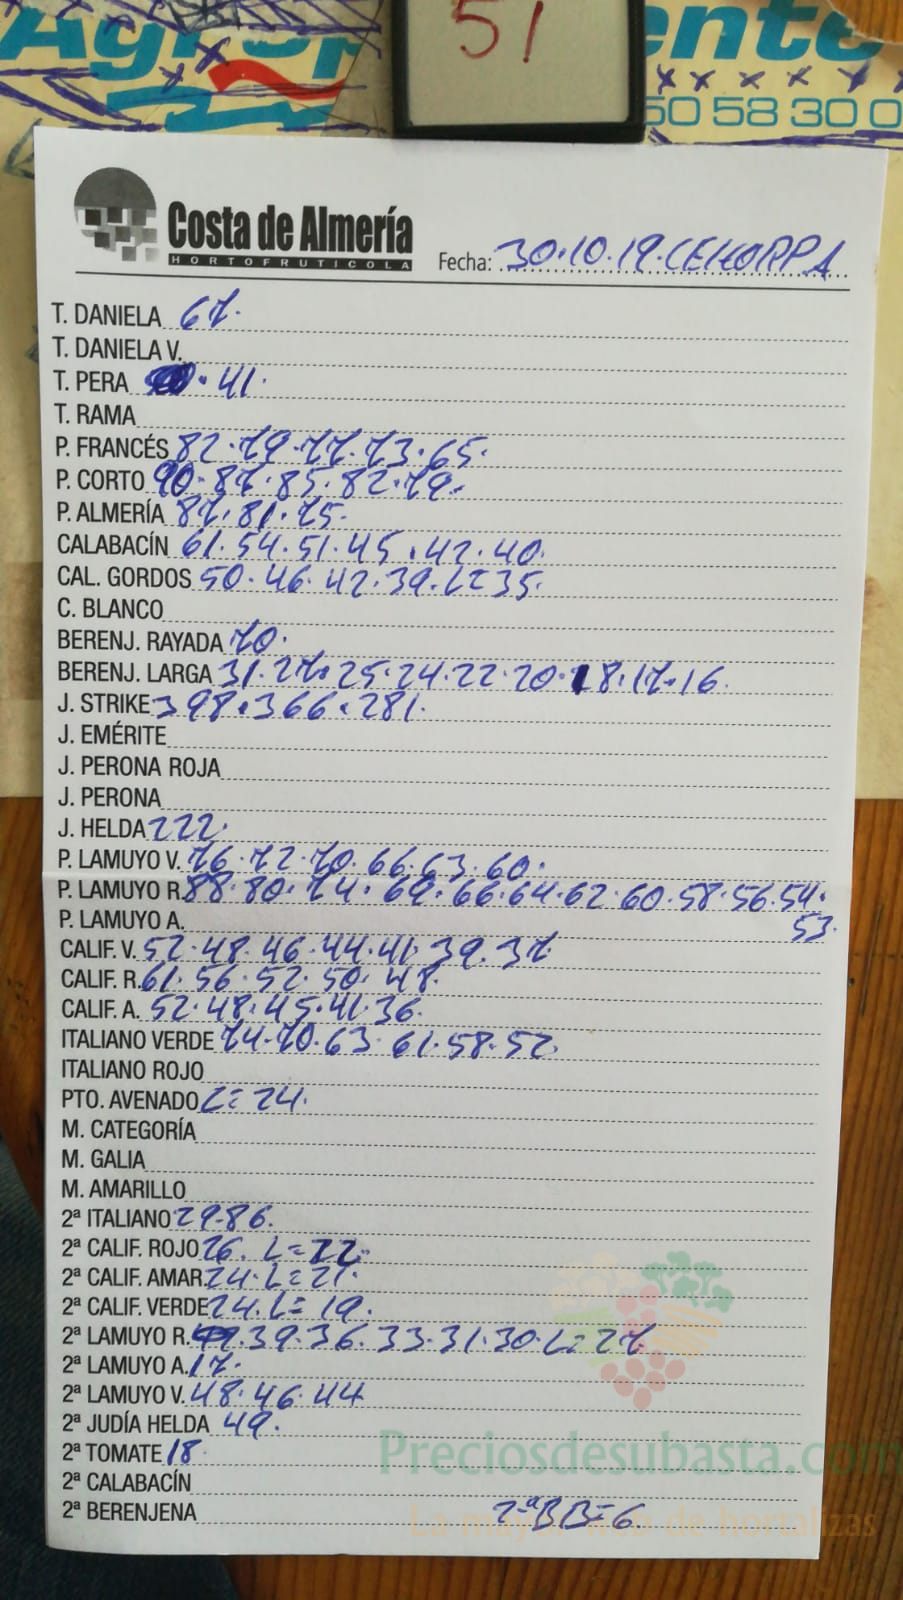 51
50 58 30 0
Costa de Almería
HORTOFRUTICOLA
Fecha: 30.10.19. CEHORPA
T. DANIELA 67.
T. DANIELA V.
T. PERA 41.
T. RAMA
P. FRANCÉS 82.79.77.73.65.
P. CORTO 90.87.85.82.79.
P. ALMERÍA 87.81.75.
CALABACÍN 61.54.51.45.42.40.
CAL. GORDOS 50.46.42.39.L=35.
C. BLANCO
BERENJ. RAYADA 70.
BERENJ. LARGA 31.27.25.24.22.20.18.17.16.
J. STRIKE 398.366.281.
J. EMÉRITE
J. PERONA ROJA
J. PERONA
J. HELDA 222.
P. LAMUYO V. 76.72.70.66.63.60.
P. LAMUYO R. 88.80.74.69.66.64.62.60.58.56.54.
53.
P. LAMUYO A.
CALIF. V. 52.48.46.44.41.39.37
CALIF. R. 61.56.52.50.48.
CALIF. A. 52.48.45.41.36.
ITALIANO VERDE 74.70.63.61.58.52.
ITALIANO ROJO
PTO. AVENADO L=24.
M. CATEGORÍA
M. GALIA
M. AMARILLO
2ª ITALIANO 29.86.
2ª CALIF. ROJO 26. L=22.
2ª CALIF. AMAR. 24. L=21.
2ª CALIF. VERDE 24. L=19.
2ª LAMUYO R. 39.36.33.31.30.L=27.
2ª LAMUYO A. 17.
2ª LAMUYO V. 48.46.44
2ª JUDÍA HELDA 49.
2ª TOMATE 18.
Preciosdesubasta.com
2ª CALABACÍN
2ª BERENJENA 2ªBB=6
de hortalizas